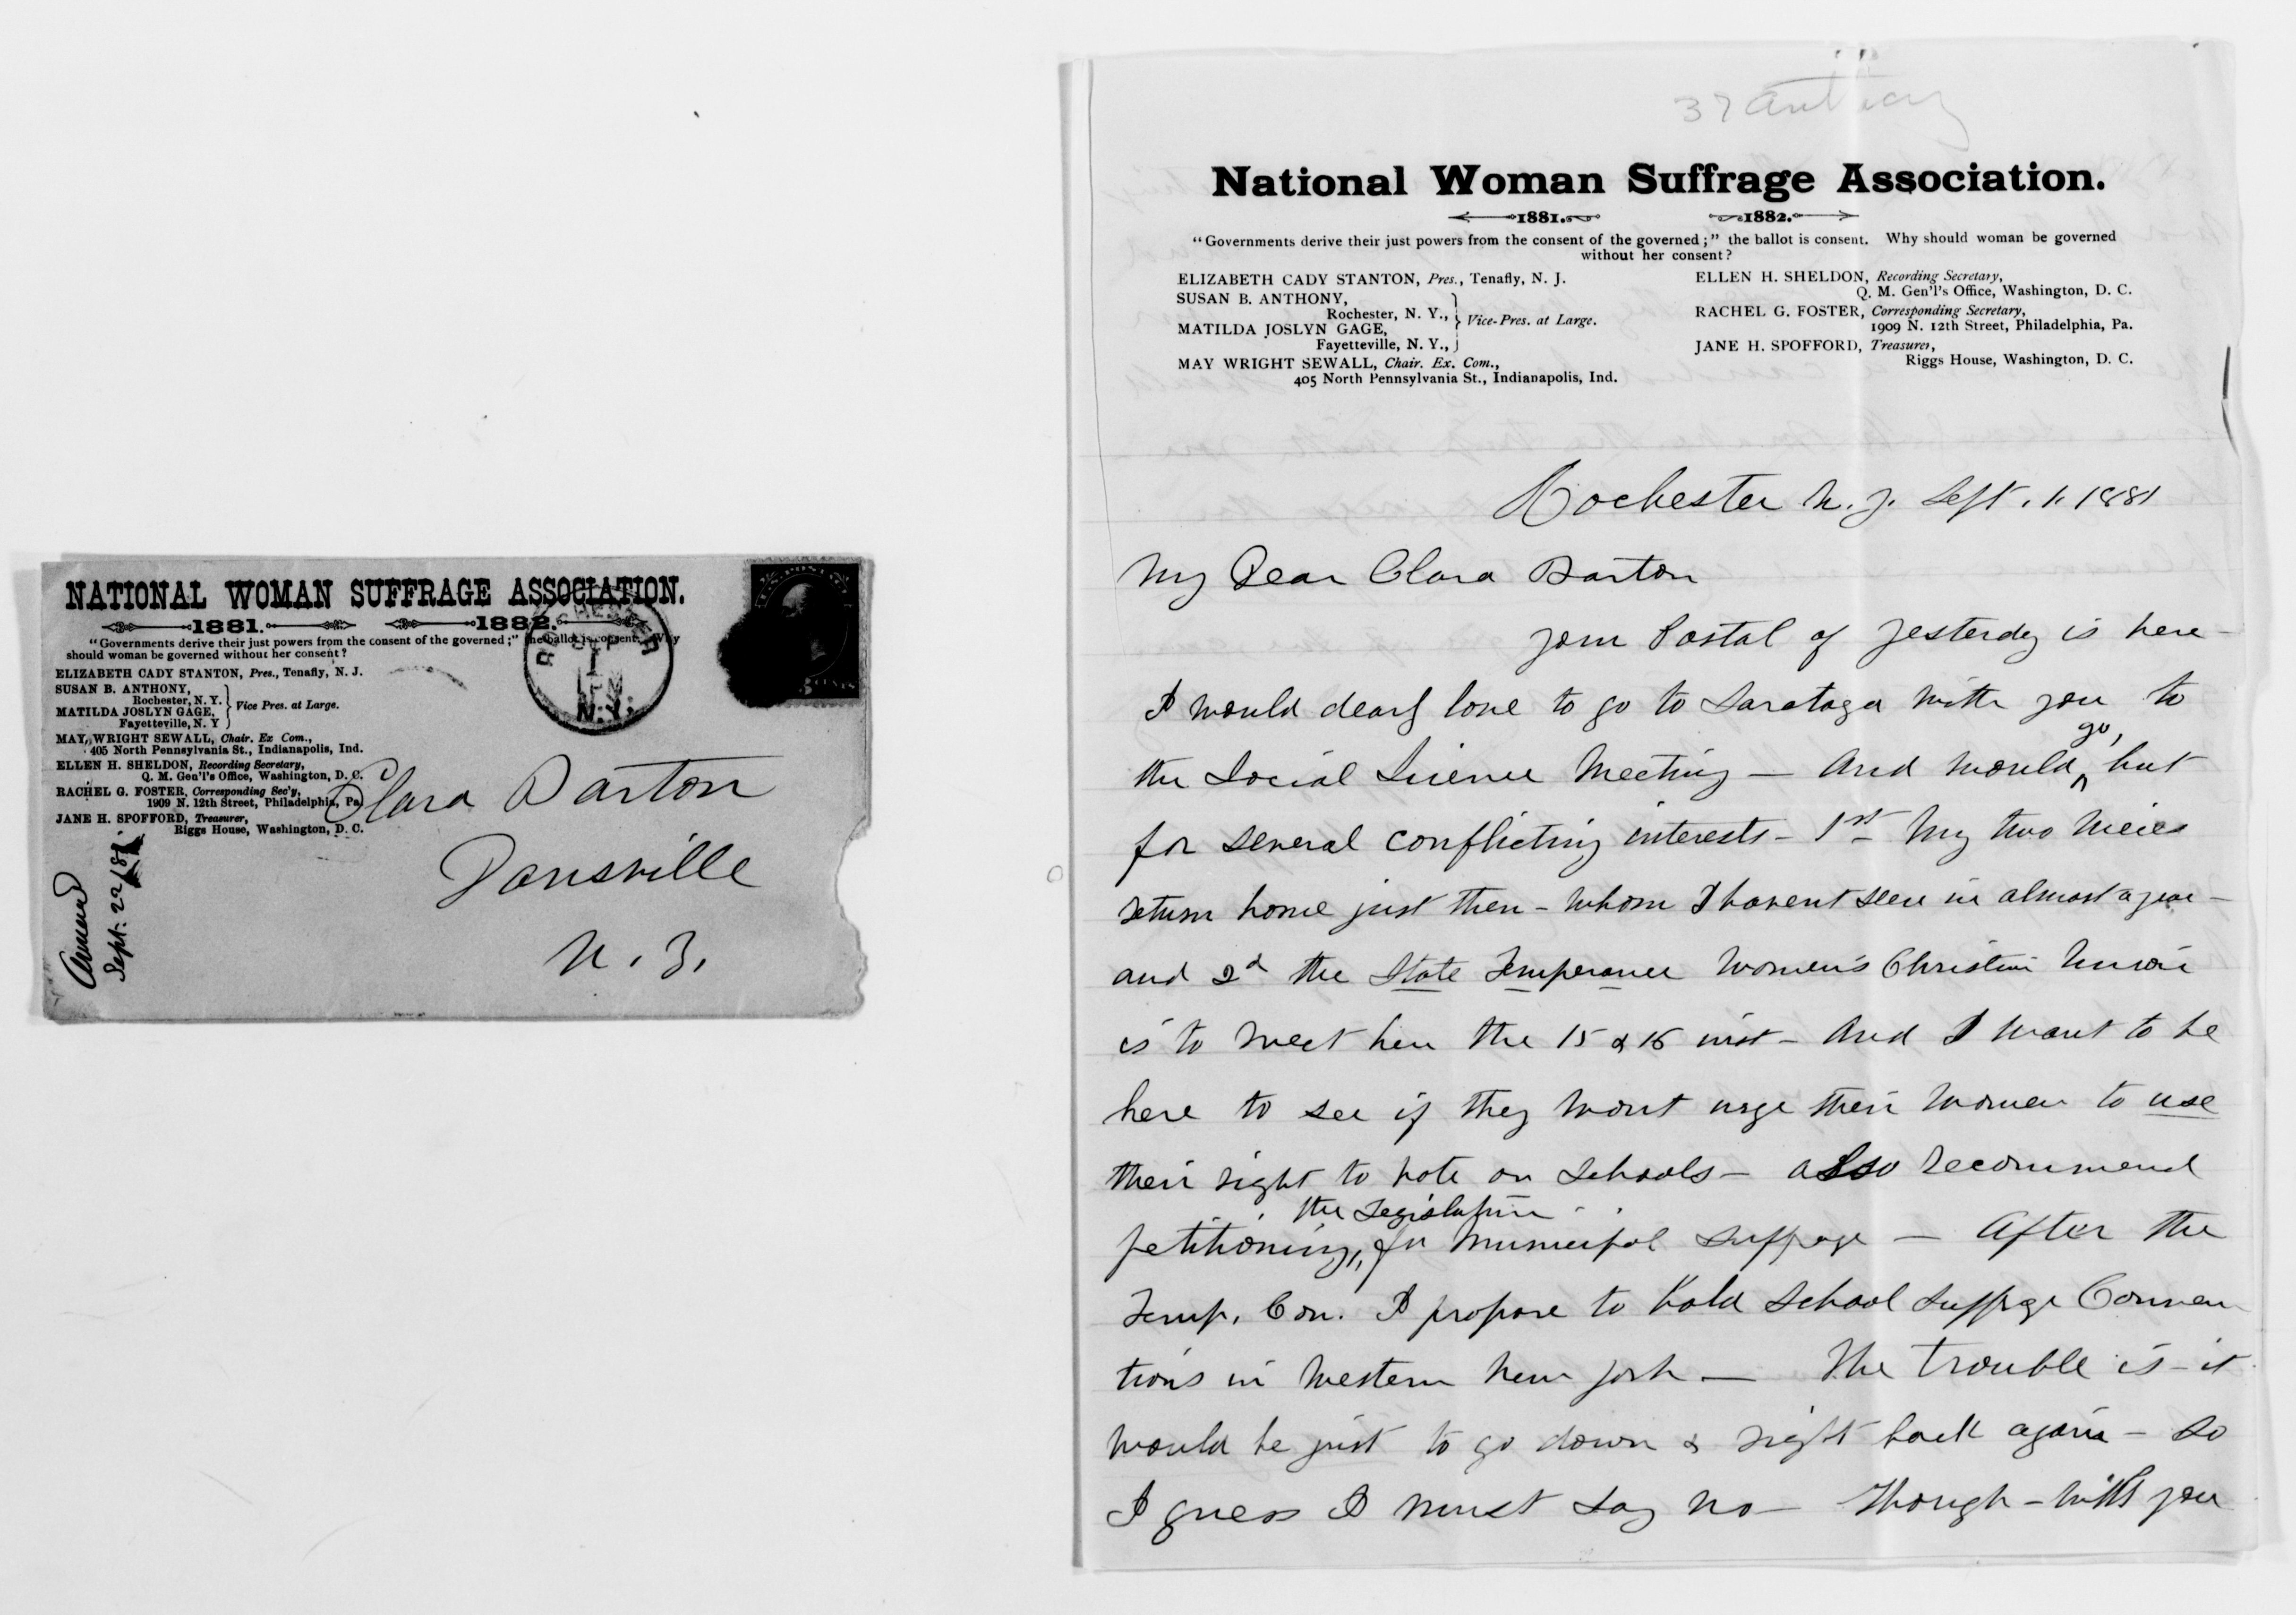 NATIONAL WOMAN SUFFRAGE ASSOCIATION.
1881. 1882.
"Governments derive their just powers from the consent of the governed;" the ballot is consent. Why
should woman be governed without her consent?
ELIZABETH CADY STANTON, Pres., Tenafly, N. J.
SUSAN B. ANTHONY,
Rochester, N. Y.
MATILDA JOSLYN GAGE,
Fayetteville, N. Y
Vice Pres. at Large.
MAY WRIGHT SEWALL, Chair. Ex Com.,
405 North Pennsylvania St., Indianapolis, Ind.
ELLEN H. SHELDON, Recording Secretary,
Q. M. Gen'l's Office, Washington, D. C.
RACHEL G. FOSTER, Corresponding Sec'y,
1909 N. 12th Street, Philadelphia, Pa
JANE H. SPOFFORD, Treasurer,
Riggs House, Washington, D. C.
ROCHESTER
SEP
1
N.Y.
CENTS
Clara Barton
Dansville
N. Y.
Sept. 22/81
37 Anthony
National Woman Suffrage Association.
1881. 1882.
"Governments derive their just powers from the consent of the governed;" the ballot is consent. Why should woman be governed
without her consent?
ELIZABETH CADY STANTON, Pres., Tenafly, N. J.
SUSAN B. ANTHONY,
Rochester, N. Y.,
MATILDA JOSLYN GAGE,
Fayetteville, N. Y.,
Vice-Pres. at Large.
MAY WRIGHT SEWALL, Chair. Ex. Com.,
405 North Pennsylvania St., Indianapolis, Ind.
ELLEN H. SHELDON, Recording Secretary,
Q. M. Gen'l's Office, Washington, D. C.
RACHEL G. FOSTER, Corresponding Secretary,
1909 N. 12th Street, Philadelphia, Pa.
JANE H. SPOFFORD, Treasurer,
Riggs House, Washington, D. C.
Rochester N. Y. Sept. 1. 1881
My Dear Clara Barton
Your Postal of yesterday is here—
I would dearly love to go to Saratoga with you to
the Social Science Meeting — And would go, but
for several conflicting interests— 1st My two nieces
return home just then— whom I havent seen in almost a year—
and 2d the State Temperance Women's Christian Union
is to meet here the 15 & 16 inst— And I want to be
here to see if they wont urge their women to use
their right to vote on schools— also recommend
petitioning, the Legislature for Municipal suffrage — After the
Temp. Con. I propose to hold School Suffrage Conven
tions in Western New York — The trouble is— it
would be just to go down & right back again— so
I guess I must say no— though—with you